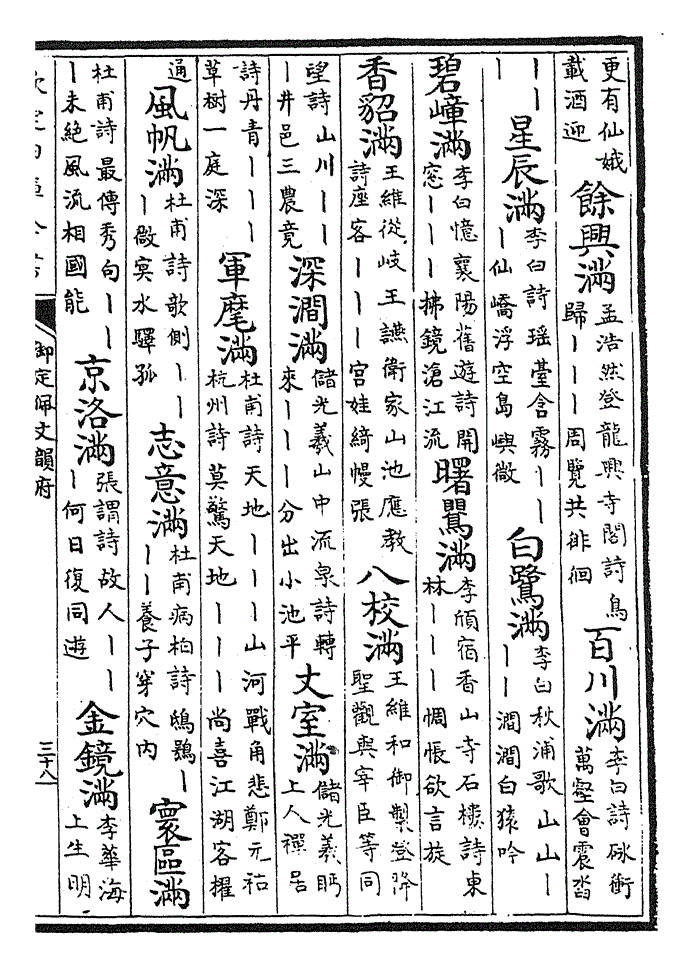 更有仙娥載酒迎 餘興滿 孟浩然登龍興寺閣詩鳥歸丨丨丨周覽共徘徊 百川滿 李白詩砯衝萬壑會震沓
丨丨丨 星辰滿 李白詩瑶臺含霧丨丨丨仙嶠浮空島嶼微 白鷺滿 李白秋浦歌山山丨丨丨澗澗白猿吟
碧嶂滿 李白憶襄陽舊遊詩開窓丨丨丨拂鏡滄江流 曙鸎滿 李頎宿香山寺石樓詩東林丨丨丨惆悵欲言旋
香貂滿 王維從岐王讌衛家山池應教詩座客丨丨丨宮娃綺幔張 八校滿 王維和御製登降聖觀與宰臣等同
望詩山川丨丨丨井邑三農竟 深澗滿 儲光羲山中流泉詩轉來丨丨丨分出小池平 丈室滿 儲光羲眄上人禪居
詩丹青丨丨丨草樹一庭深 軍麾滿 杜甫詩天地丨丨丨山河戰角悲鄭元祐杭州詩莫驚天地丨丨丨尚喜江湖客櫂
通 風帆滿 杜甫詩歌側丨丨丨微冥水驛孤 志意滿 杜甫病柏詩鴟鴞丨丨丨養子穿穴內 寰區滿
杜甫詩最傳秀句丨丨丨未絕風流相國能 京洛滿 張謂詩故人丨丨丨何日復同遊 金鏡滿 李華海上生明丨
御定佩文韻府
三十八